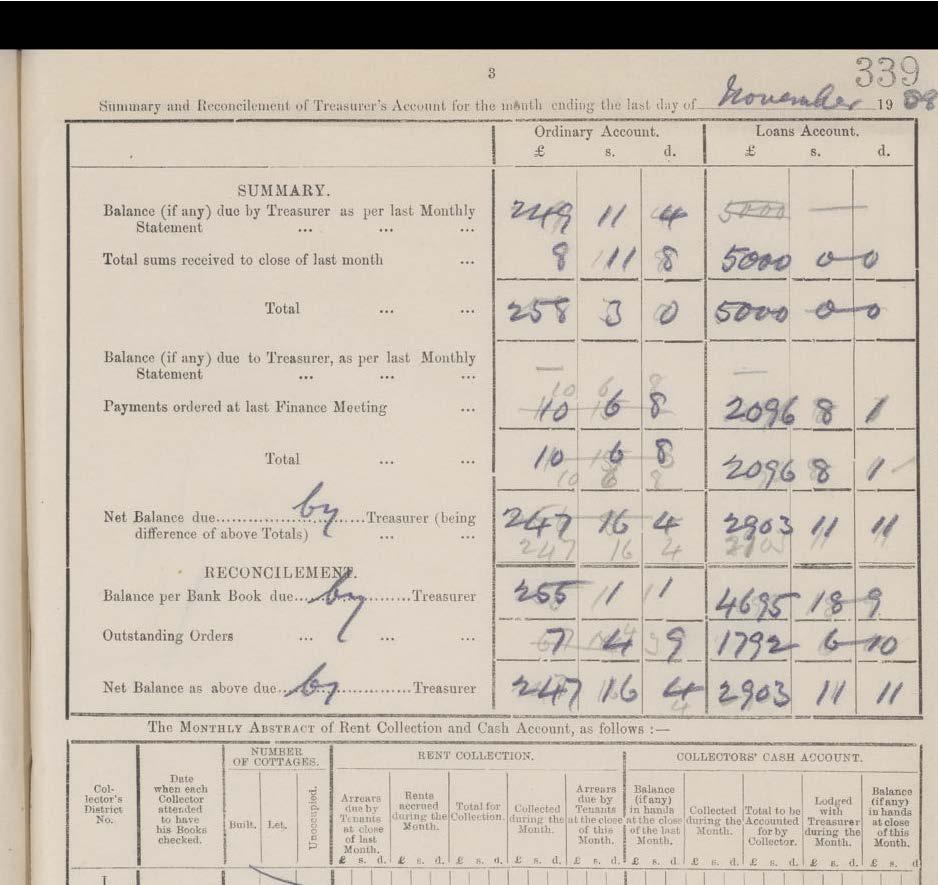 3
339
Summary and Reconcilement of Treasurer's Account for the month ending the last day of November 1908
Ordinary Account. Loans Account.
£ s. d. £ s. d.
SUMMARY.
Balance (if any) due by Treasurer as per last Monthly
Statement ... ... ... 249 11 4 5000 —
Total sums received to close of last month ... 8 11 8 5000 0 0
Total ... ... 258 3 0 5000 0 0
Balance (if any) due to Treasurer, as per last Monthly
Statement ... ... ... — —
10 6 8
Payments ordered at last Finance Meeting ... 10 6 8 2096 8 1
Total ... ... 10 6 8 2096 8 1
10 6 8
Net Balance due.....by.....Treasurer (being 247 16 4 2903 11 11
difference of above Totals) ... ... 247 16 4 11 11
RECONCILEMENT.
Balance per Bank Book due.....by.....Treasurer 255 1 1 4695 18 9
Outstanding Orders ... ... ... 7 4 9 1792 6 10
Net Balance as above due.....by.....Treasurer 247 16 4 2903 11 11
4
The MONTHLY ABSTRACT of Rent Collection and Cash Account, as follows :—
Collector's District No.
Date when each Collector attended to have his Books checked.
NUMBER OF COTTAGES.
Built. Let. Unoccupied.
RENT COLLECTION.
Arrears due by Tenants at close of last Month.
Rents accrued during the Month.
Total for Collection.
Collected during the Month.
Arrears due by Tenants at the close of this Month.
COLLECTORS' CASH ACCOUNT.
Balance (if any) in hands at the close of the last Month.
Collected during the Month.
Total to be Accounted for by Collector.
Lodged with Treasurer during the Month.
Balance (if any) in hands at close of this Month.
£ s. d. £ s. d. £ s. d. £ s. d. £ s. d. £ s. d. £ s. d. £ s. d. £ s. d. £ s. d
I